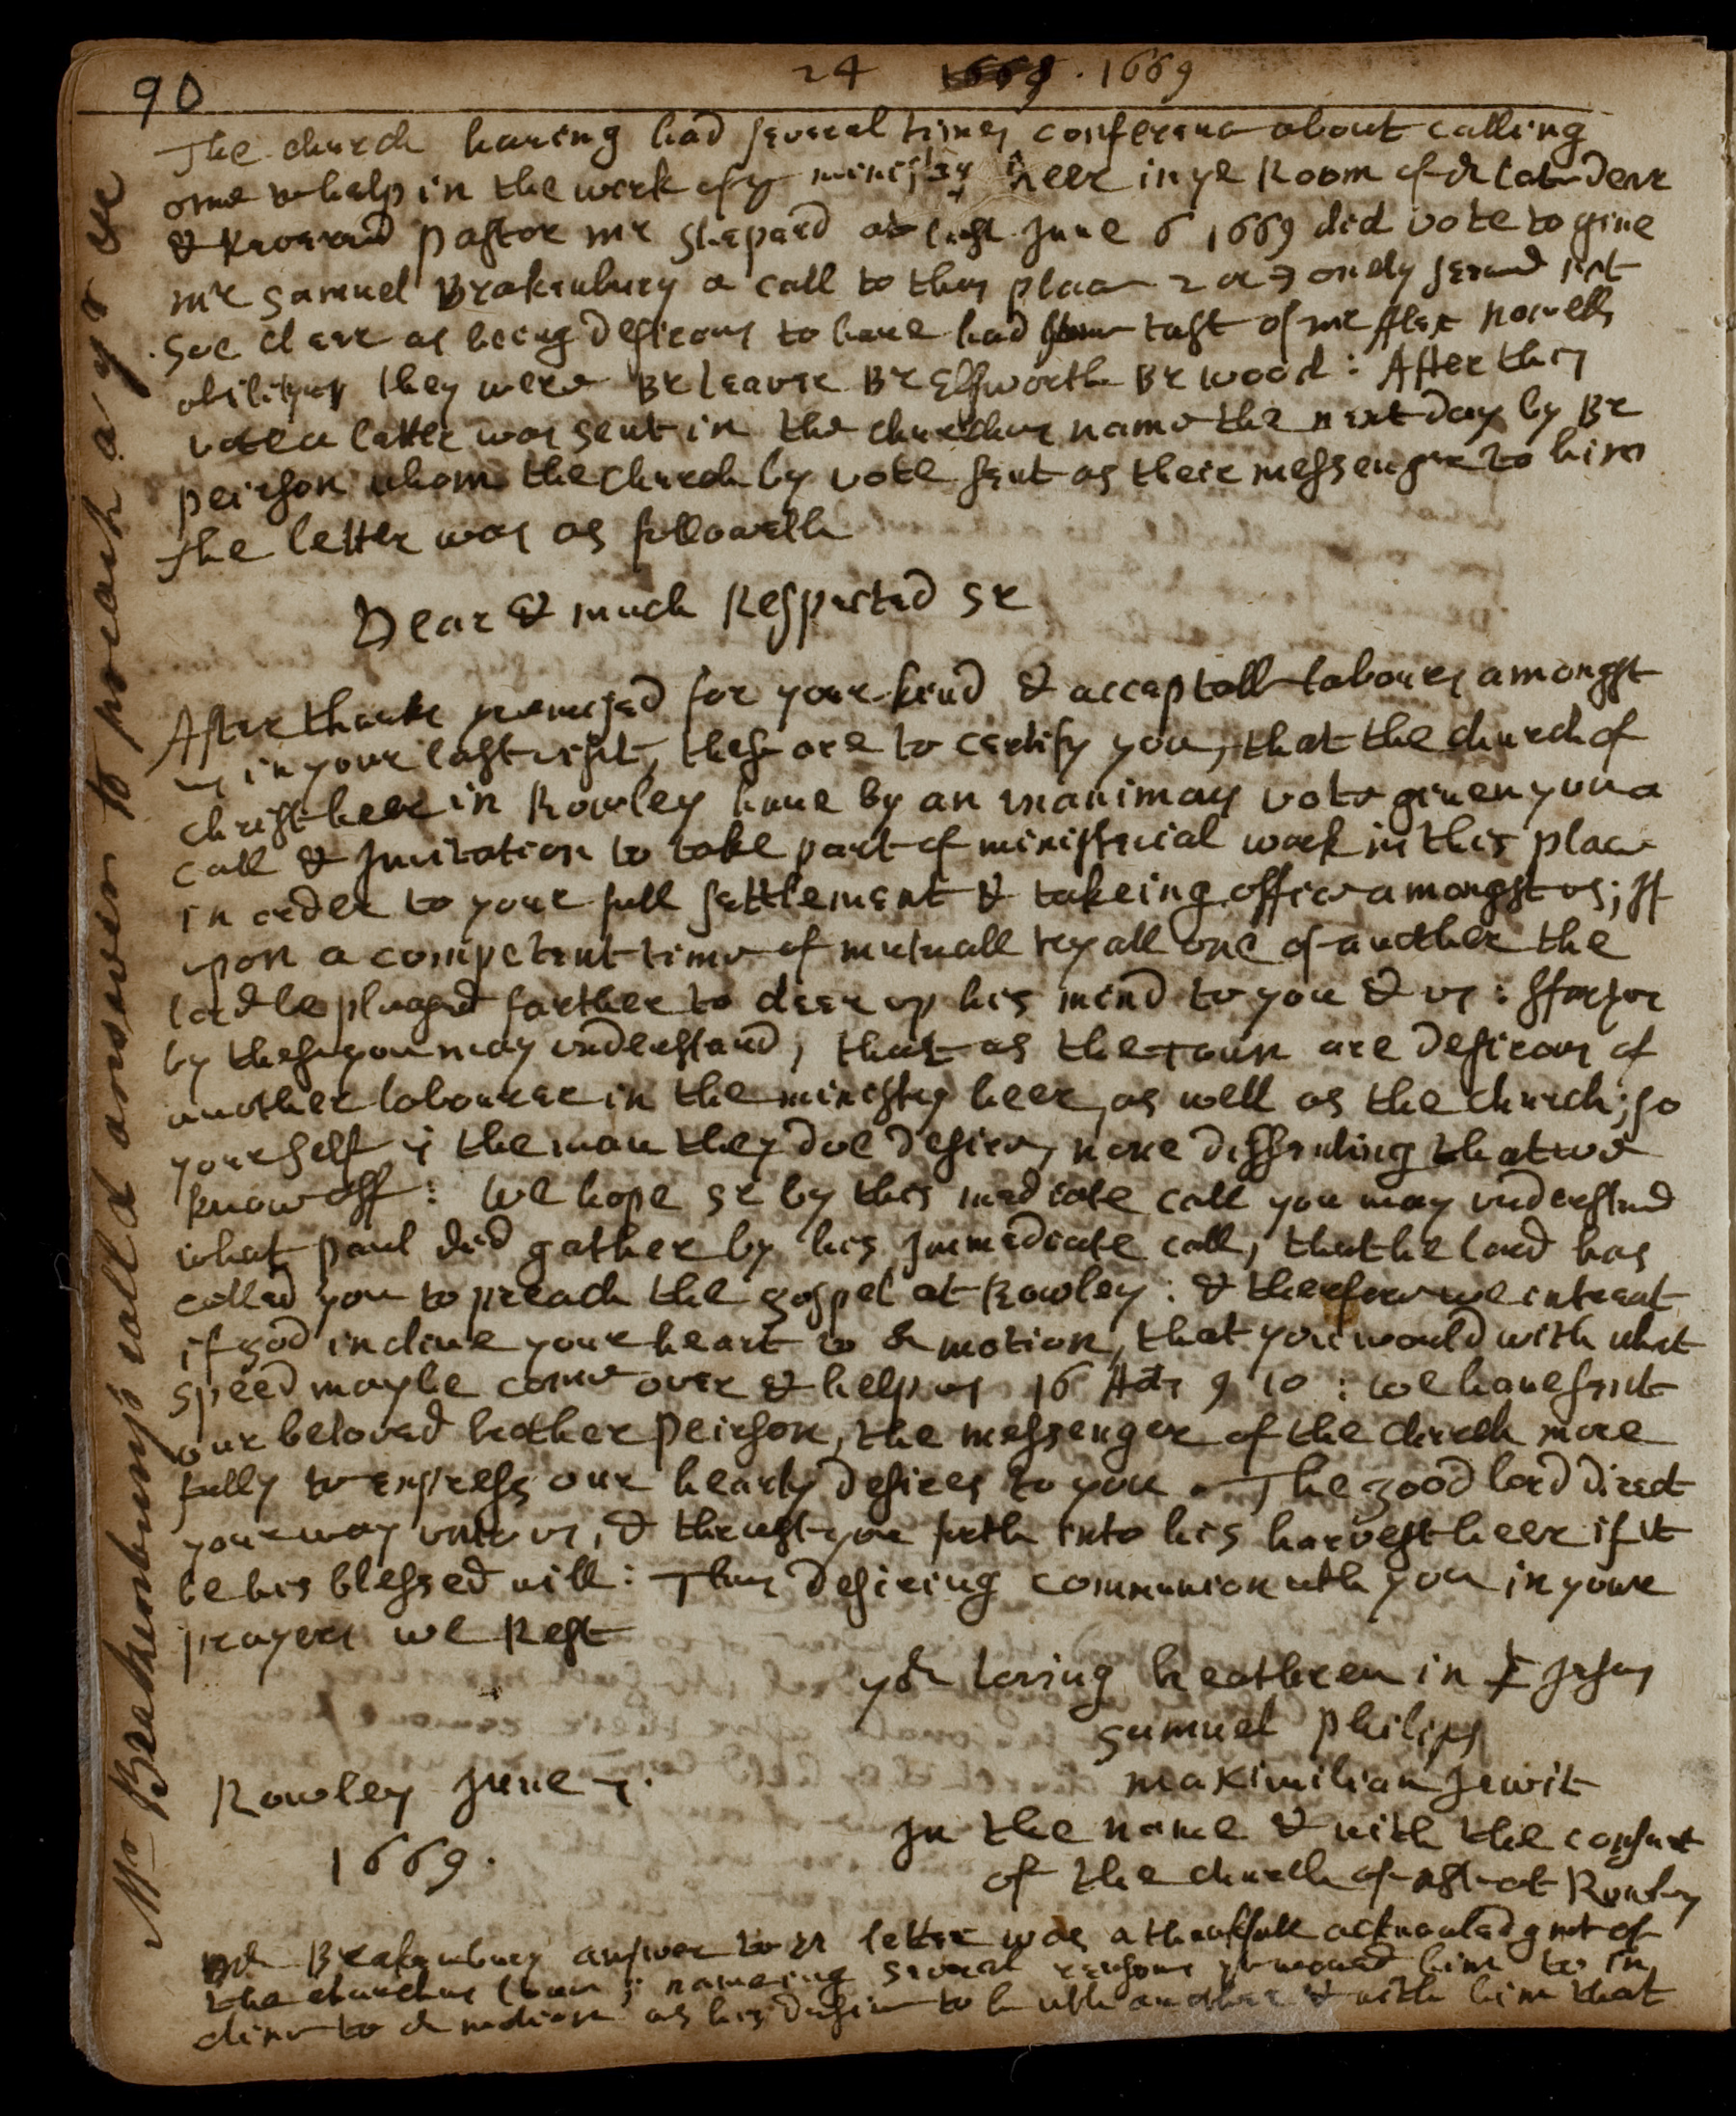 90
24 1668 . 1669
The church haveing had severall times conferenc about calling
some to help in the work of ye ministry heer in ye Room of or late dear
& Reverend pastor mr Shepard at last June 6 1669 did vote to give
mr Samuel Brakenbury a call to this place 2 or 3 onely seemd not
soe clear as being desirous to have had some tast of mr Alex nowells
abilityes they were Br leaver Br Elsworth Br wood : After this
vote a letter was sent in the churches name the next day by Br
peirson whom the church by vote sent as their messenger to him
the letter was as followeth
Dear & much Respected Sr
After thanks premised for your kind & acceptable labours amongst
us in your last visit, these are to certify you, that the church of
christ heer in Rowley have by an unanimous vote given you a
call & Invitation to take part of ministeriall work in this place
in order to your full settlement & takeing office amongst us ; If
upon a competent time of mutuall tryall one of another the
lord be pleased farther to cleer up his mind to you & us :
by these you may understand, that as the town are desirous of
another labourer in the ministry heer, as well as the church ; so
yourself is the man they doe desire, none dissenting that we
know off : We hope Sr by this mediate call you may understand
what paul did gather by his Immediate call, that the lord has
called you to preach the gospel at Rowley : & therefore we intreat
if god incline your heart to or motion, that you would with what
speed may be come over & help us 16 Acts 9 10 : we have sent
our beloved brother peirson, the messenger of the church more
fully to express our hearty desires to you . The good lord direct
your way unto us, & thrust you forth into his harvest heer if it
be his blessed will : Thus desireing communion with you in your
prayers we Rest
yor loving breathren in Jesus
Samuel philips
maximilian Jewit
Rowley June 7 .
1669 .
In the name & with the consent
of the church of xst at Rowley
mr Brakenbury answer to or letter was a thankfull acknowledgmt of
the churches love ; nameing several reasons yt moved him to in
cline to or motion as his desire to be with another & with him that
Mr Brakenbury's call & answer to preach a yr or